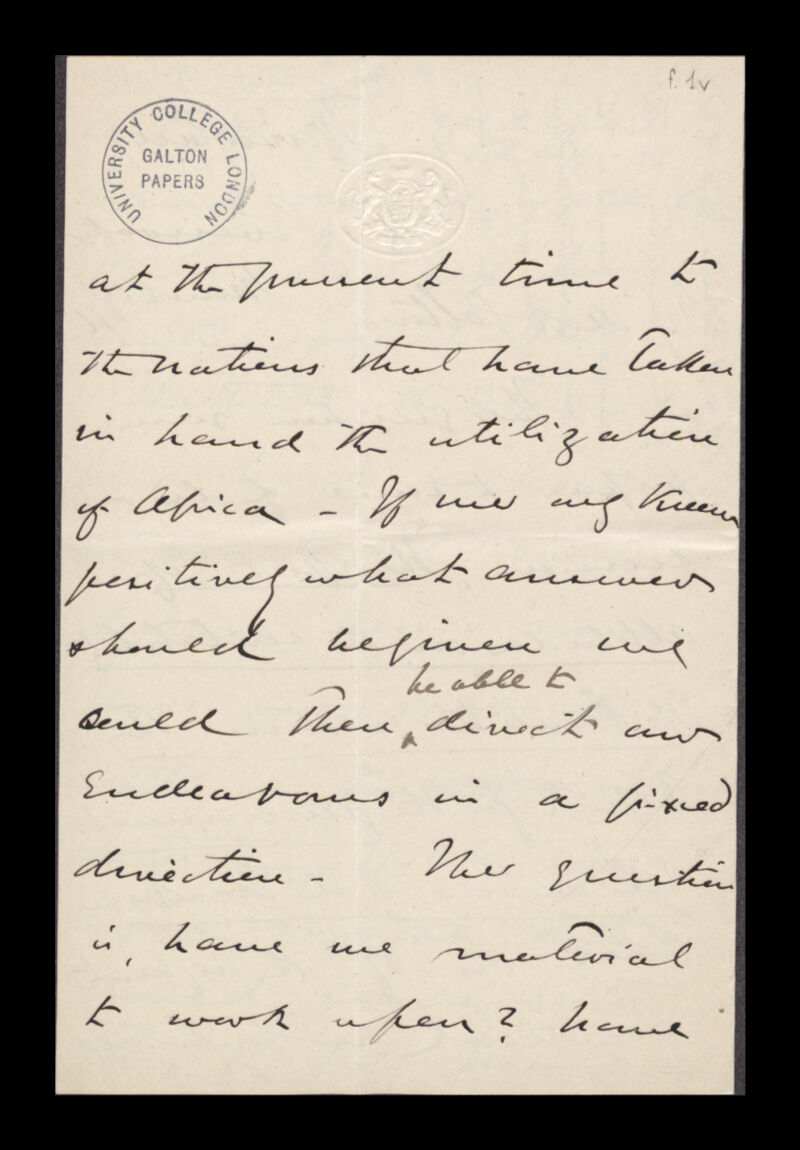 f. 1v
UNIVERSITY COLLEGE LONDON
GALTON
PAPERS
at the present time to
the nations that have taken
in hand the utilization
of Africa - If we only knew
positively what answer
should be given we
be able to
could then direct our
Endeavours in a fixed
direction - The question
is, have we material
to work upon? have